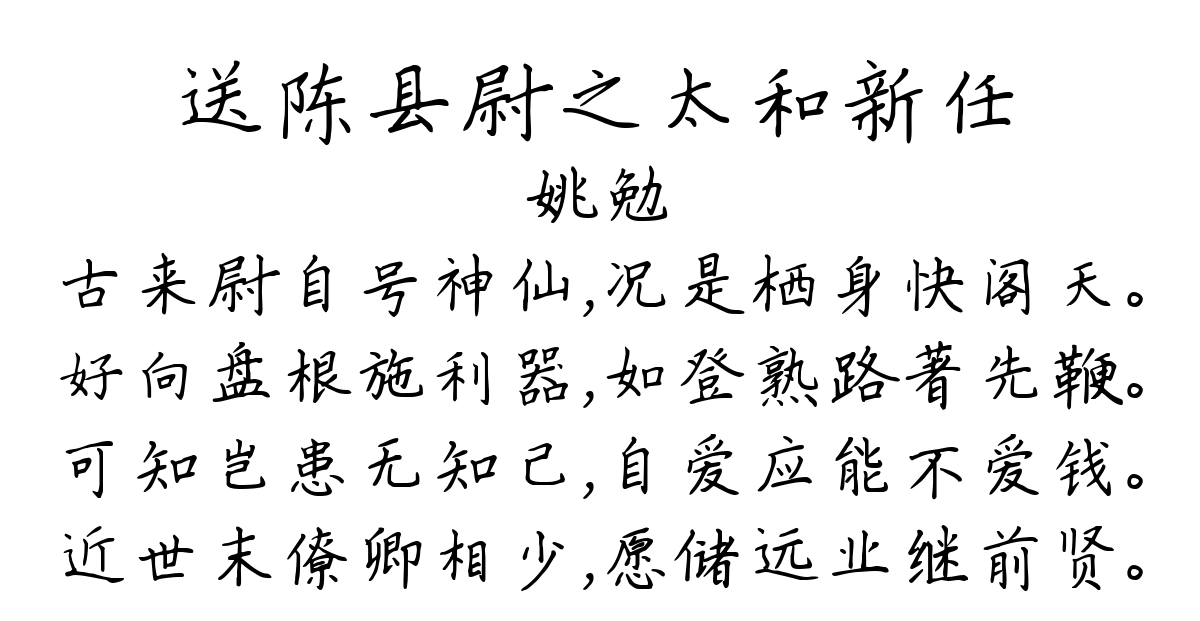 送陈县尉之太和新任
姚勉
古来尉自号神仙,况是栖身快阁天。
好向盘根施利器,如登熟路著先鞭。
可知岂患无知己,自爱应能不爱钱。
近世末僚卿相少,愿储远业继前贤。